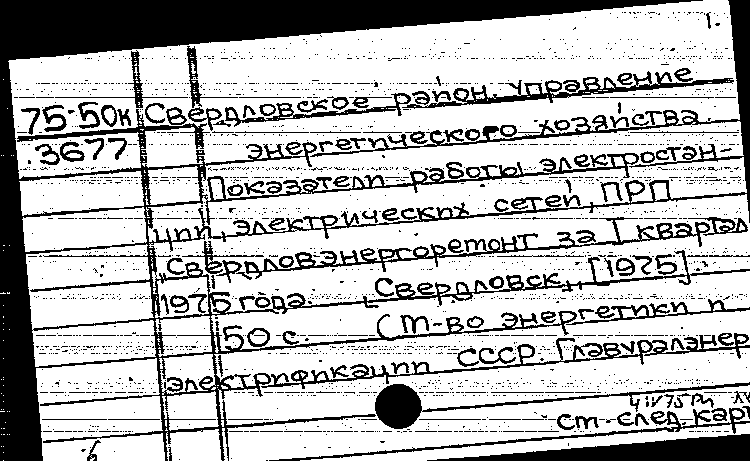 1.
75-50к Свердловское район. управление
3677 энергетического хозяйства.
Показатели работы электростан-
ции, электрических сетей, ПРП
„Свердловэнергоремонт за I квартал
1975 года. Свердловск, [1975].
50 с. (М-во энергетики и
электрификации СССР. Главуралэнер
4 IV 75
см. след. кар
6